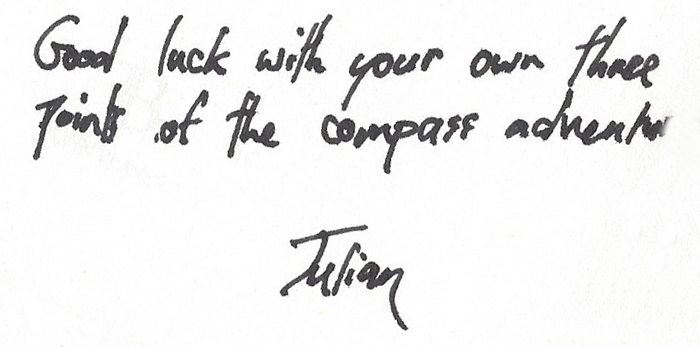 Good luck with your own three
points of the compass adventur
Julian